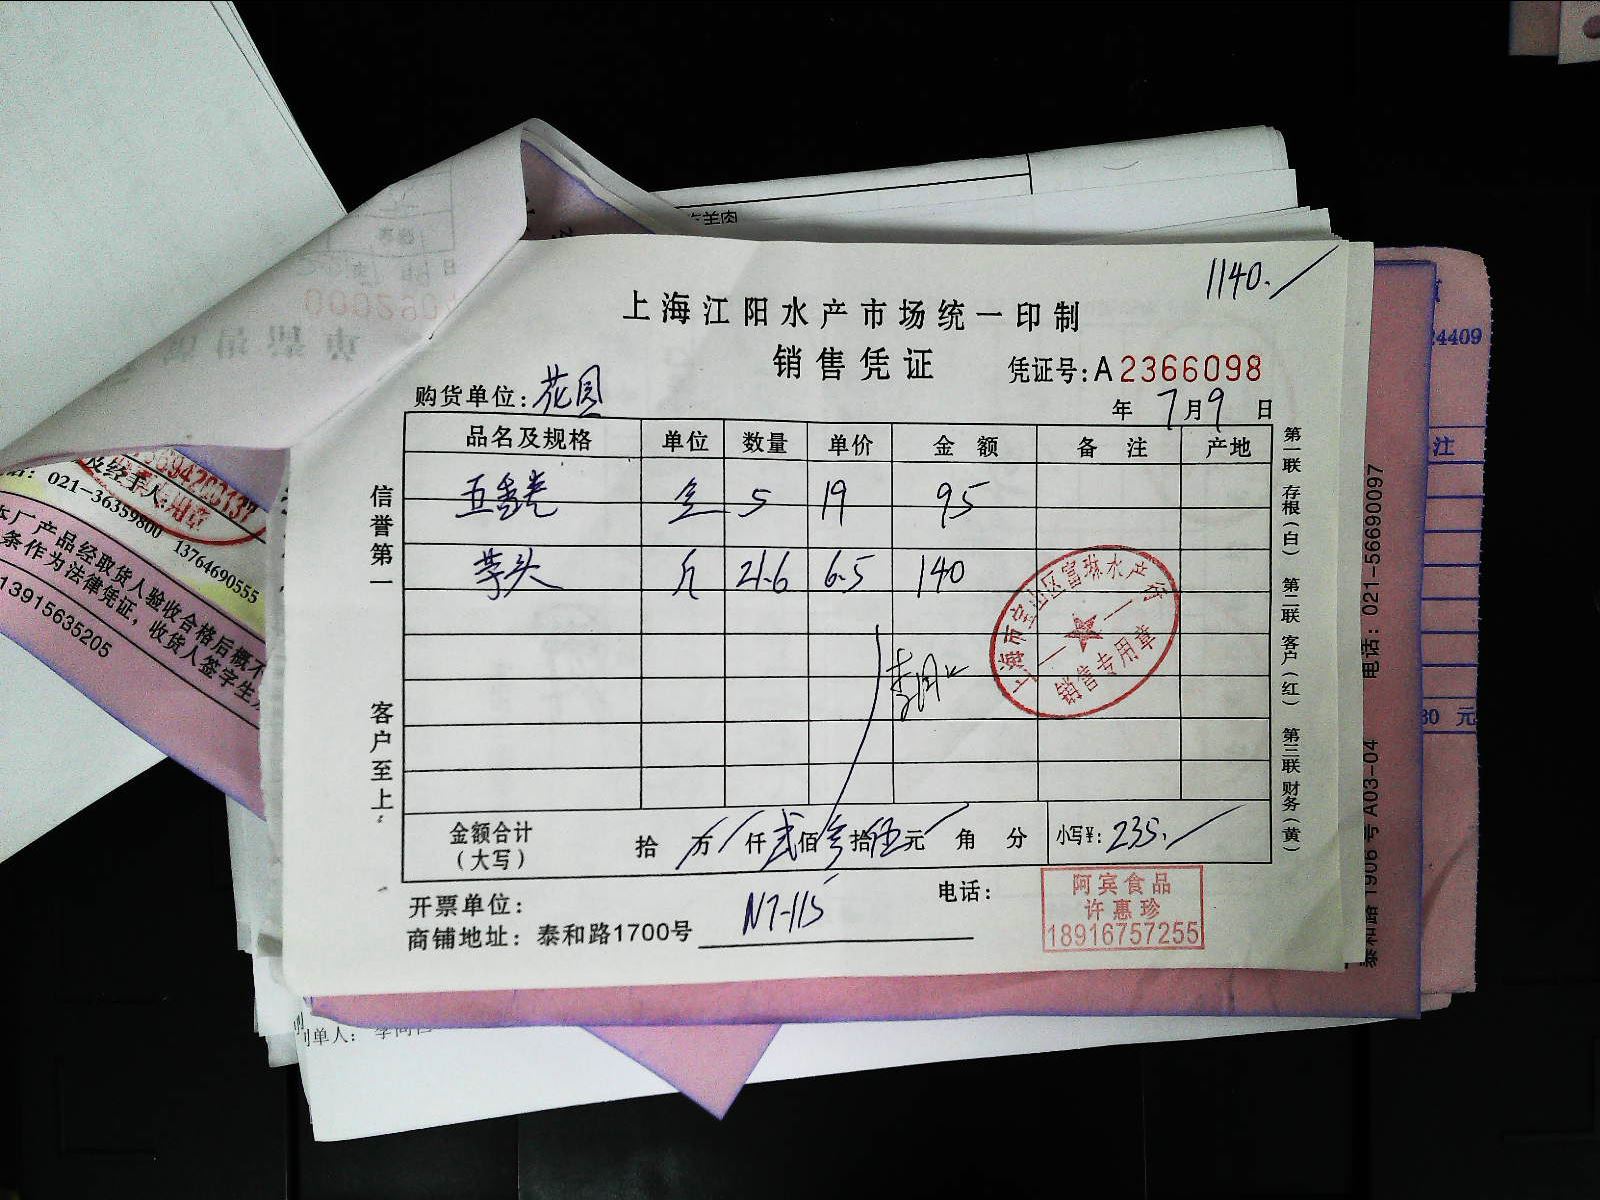 1140.
上海江阳水产市场统一印制
销售凭证
凭证号:A2366098
购货单位:花园
年 7月9 日
品名及规格 单位 数量 单价 金额 备注 产地
五香卷 5 19 95
芋头 斤 21.6 6.5 140
上海市宝山区富琳水产行
销售专用章
金额合计
(大写)
拾 万 仟 贰佰叁拾伍元 角 分
小写¥: 235.
开票单位:
电话:
商铺地址: 泰和路1700号 N7-115
阿宾食品
许惠珍
18916757255
信誉第一
客户至上
第一联 存根(白) 第二联 客户(红) 第三联 财务(黄)
羊肉
24409
注
30 元
电话: 021-56690097
号 A03-04
021-36359800 13764690555
及经手人
本厂产品经取货人验收合格后概不
条作为法律凭证, 收货人签字生
13915635205
单人: